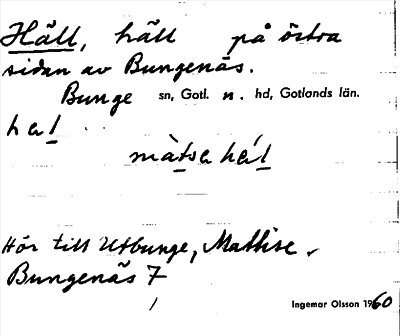 Häll, häll på östra
sidan av Bungenäs.
Bunge sn, Gotl. n. hd, Gotlands län.
hal
màtsa hál
Hör till Utbunge, Mattise,
Bungenäs 7
Ingemar Olsson 1960